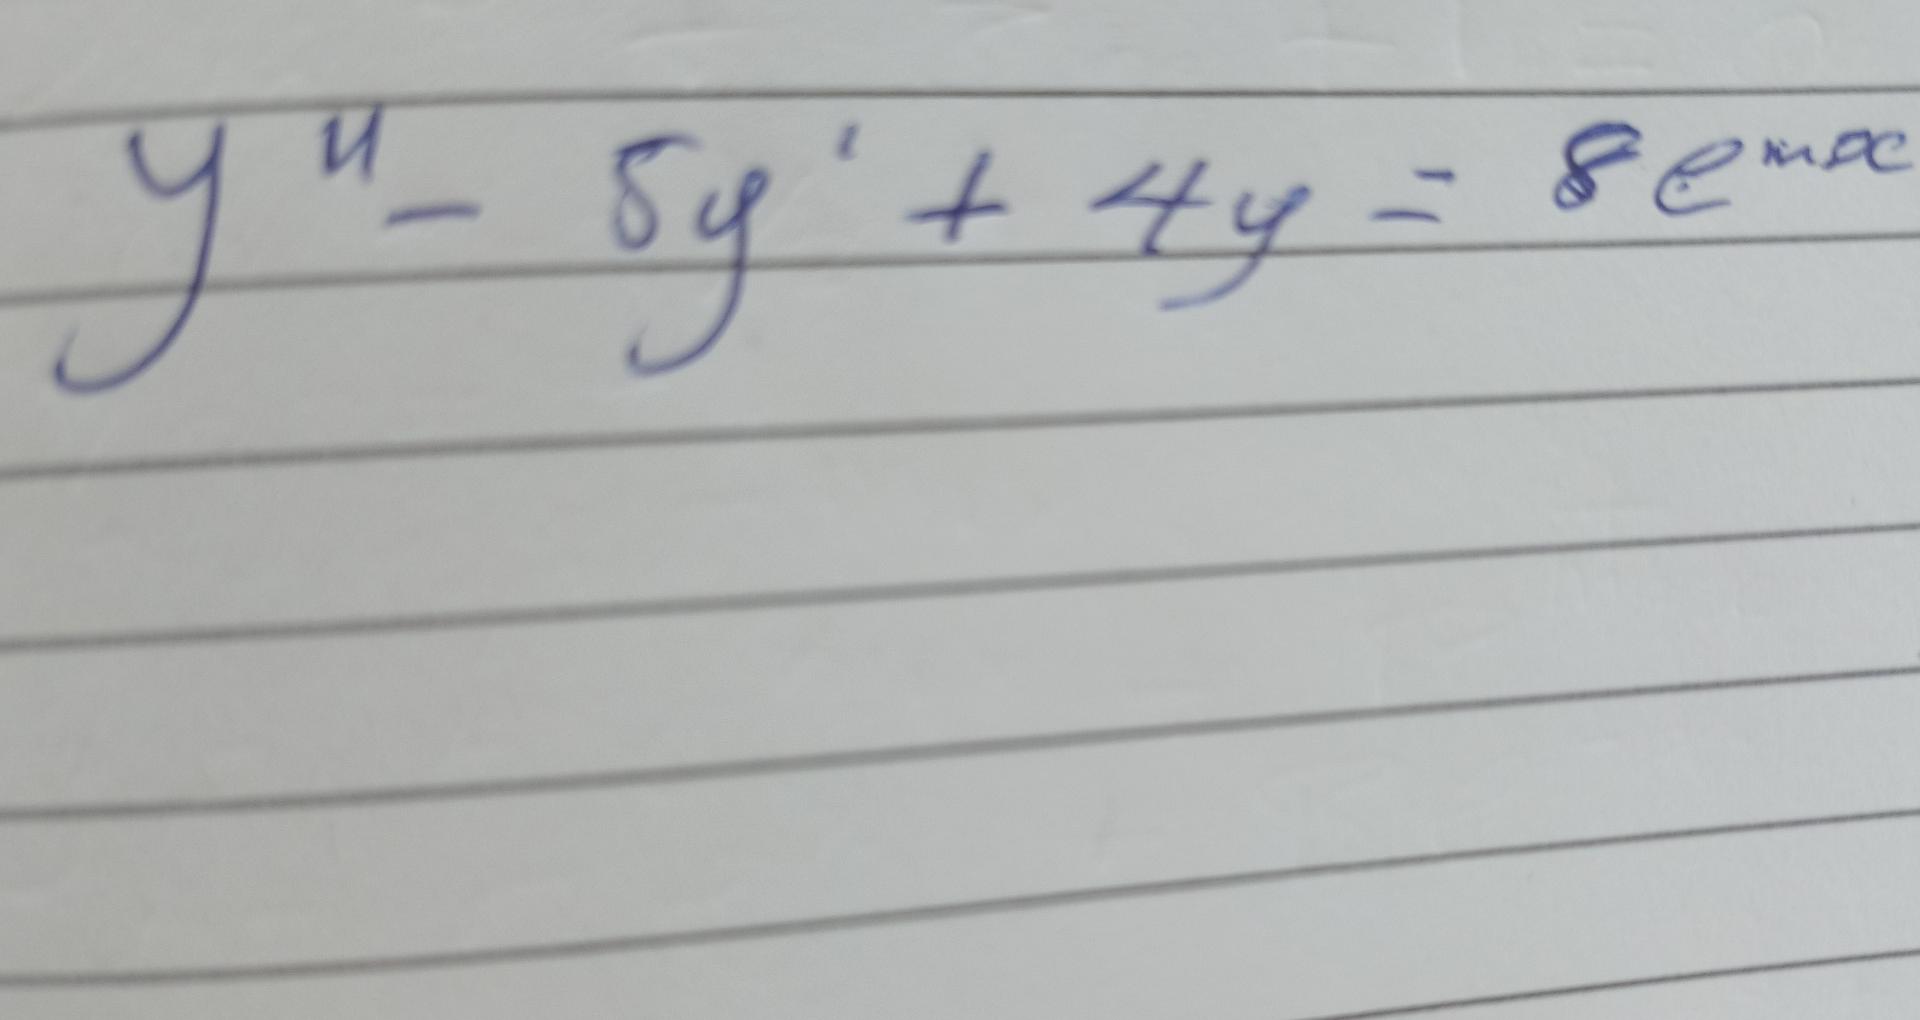 y'' - 5y' + 4y = 8e^{mx}